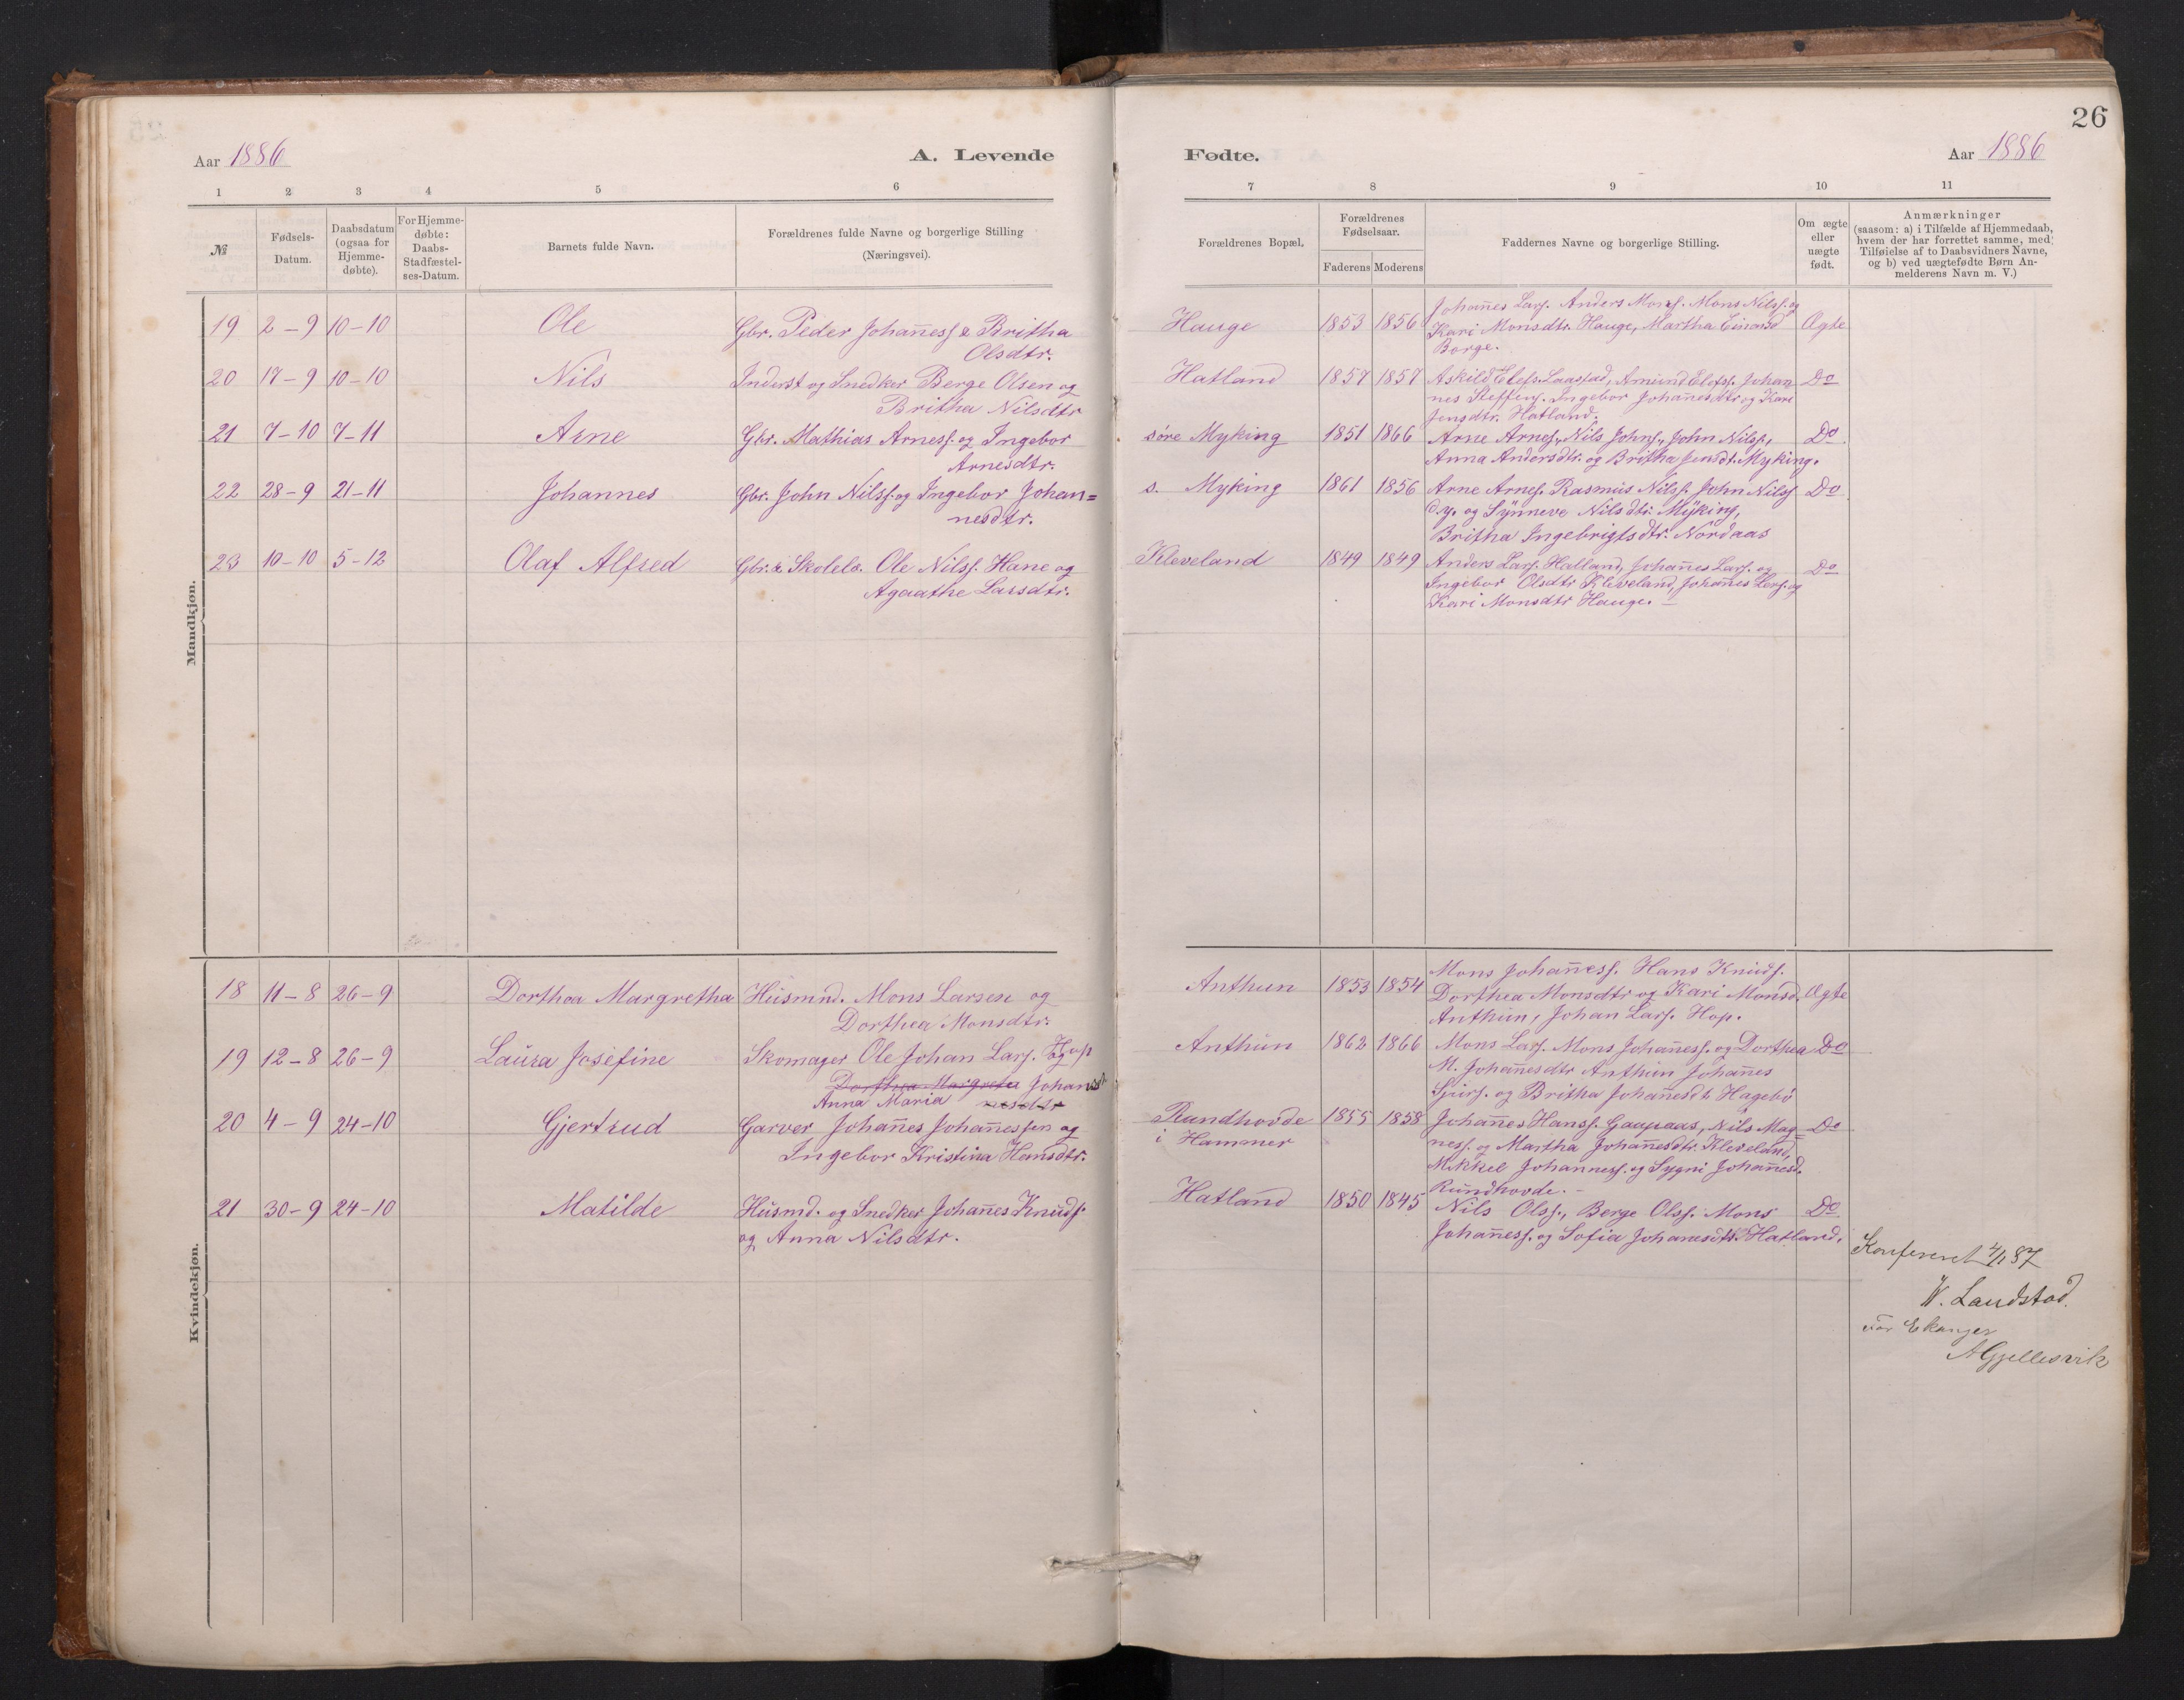 26
Aar 1886
A. Levende
Fødte.
Aar 1886
1 2 3 4 5 6 7 8 9 10 11
№
Fødsels-
Datum.
Daabsdatum
(ogsaa for
Hjemme-
døbte).
For Hjemme-
døbte:
Daabs-
Stadfæstel-
ses-Datum.
Barnets fulde Navn.
Forældrenes fulde Navne og borgerlige Stilling
(Næringsvei).
Forældrenes Bopæl.
Forældrenes
Fødselsaar.
Faderens Moderens
Faddernes Navne og borgerlige Stilling.
Om ægte
eller
uægte
født.
Anmærkninger
(saasom: a) i Tilfælde af Hjemmedaab,
hvem der har forrettet samme, med
Tilføielse af to Daabsvidners Navne,
og b) ved uægtefødte Børn An-
melderens Navn m. V.)
Mandkjøn.
19 2-9 10-10 Ole Gbr. Peder Johañess & Britha
Olsdtr.
Hauge 1853 1856 Johañes Larss. Anders Monss. Mons Nilss. og
Kari Monsdtr. Hauge, Martha Einarsd
Borge.
Ægte
20 17-9 10-10 Nils Inderst og Snedker Berge Olsen og
Britha Nilsdtr
Hatland 1857 1857 Askild Elefs. Laastad, Amund Elefss. Johan
nes Steffens. Ingebor Johañesdtr og Kari
Jensdtr. Hatland.
Do
21 7-10 7-11 Arne Gbr. Mathias Arness. og Ingebor
Arnesdtr.
søre Myking 1851 1866 Arne Arness., Nils Johns., John Nilss.,
Anna Andersdtr. og Britha Jensdt. Myking.
Do
22 28-9 21-11 Johannes Gbr. John Nilss. og Ingebor Johan=
nesdtr.
s. Myking 1861 1856 Arne Arness. Rasmus Nilss. John Nilss
d.y. og Synneve Nilsdtr. Myking,
Britha Ingebrigtsdtr. Nordaas
Do
23 10-10 5-12 Olaf Alfred Gbr. & Skolelr. Ole Nilss. Hane og
Agaathe Larsdtr.
Kleveland 1849 1849 Anders Larss. Hatland, Johañes Larss. og
Ingebor Olsdtr Kleveland, Johañes Larss. og
Kari Monsdtr Hauge. —
Do
Kvindekjøn.
18 11-8 26-9 Dorthea Margretha Husmnd. Mons Larsen og
Dorthea Monsdtr.
Anthun 1853 1854 Mons Johañess. Hans Knuds.
Dorthea Monsdtr og Kari Monsd.
Anthun, Johan Larss. Hop.
Ægte
19 12-8 26-9 Laura Josefine Skomager Ole Johan Larss. Hop og
Dorthea Margreta Johans
Anna Maria nesdtr
Anthun 1862 1866 Mons Larss. Mons Johañess. og Dorthea
M. Johañesdtr Anthun Johañes
Sjurs. og Britha Johañesdt. Hagebø
Do
20 4-9 24-10 Gjertrud Garver Johañes Johañessen og
Ingebor Kristina Hansdtr.
Rundhovde
i Hammer
1855 1858 Johañes Hanss. Gaupaas, Nils Mag=
ness. og Martha Johañesdtr. Kleveland,
Mikkel Johanness. og Sygni Johañesd.
Rundhovde. —
Do
21 30-9 24-10 Matilde Husmd. og Snedker Johañes Knuds.
og Anna Nilsdtr.
Hatland 1850 1845 Nils Olss., Berge Olss. Mons
Johañess. og Sofia Johanesdtr. Hatland.
Do
Konfereret 4/1 87
W. Landstad.
Ekanger
A Gjellesvik